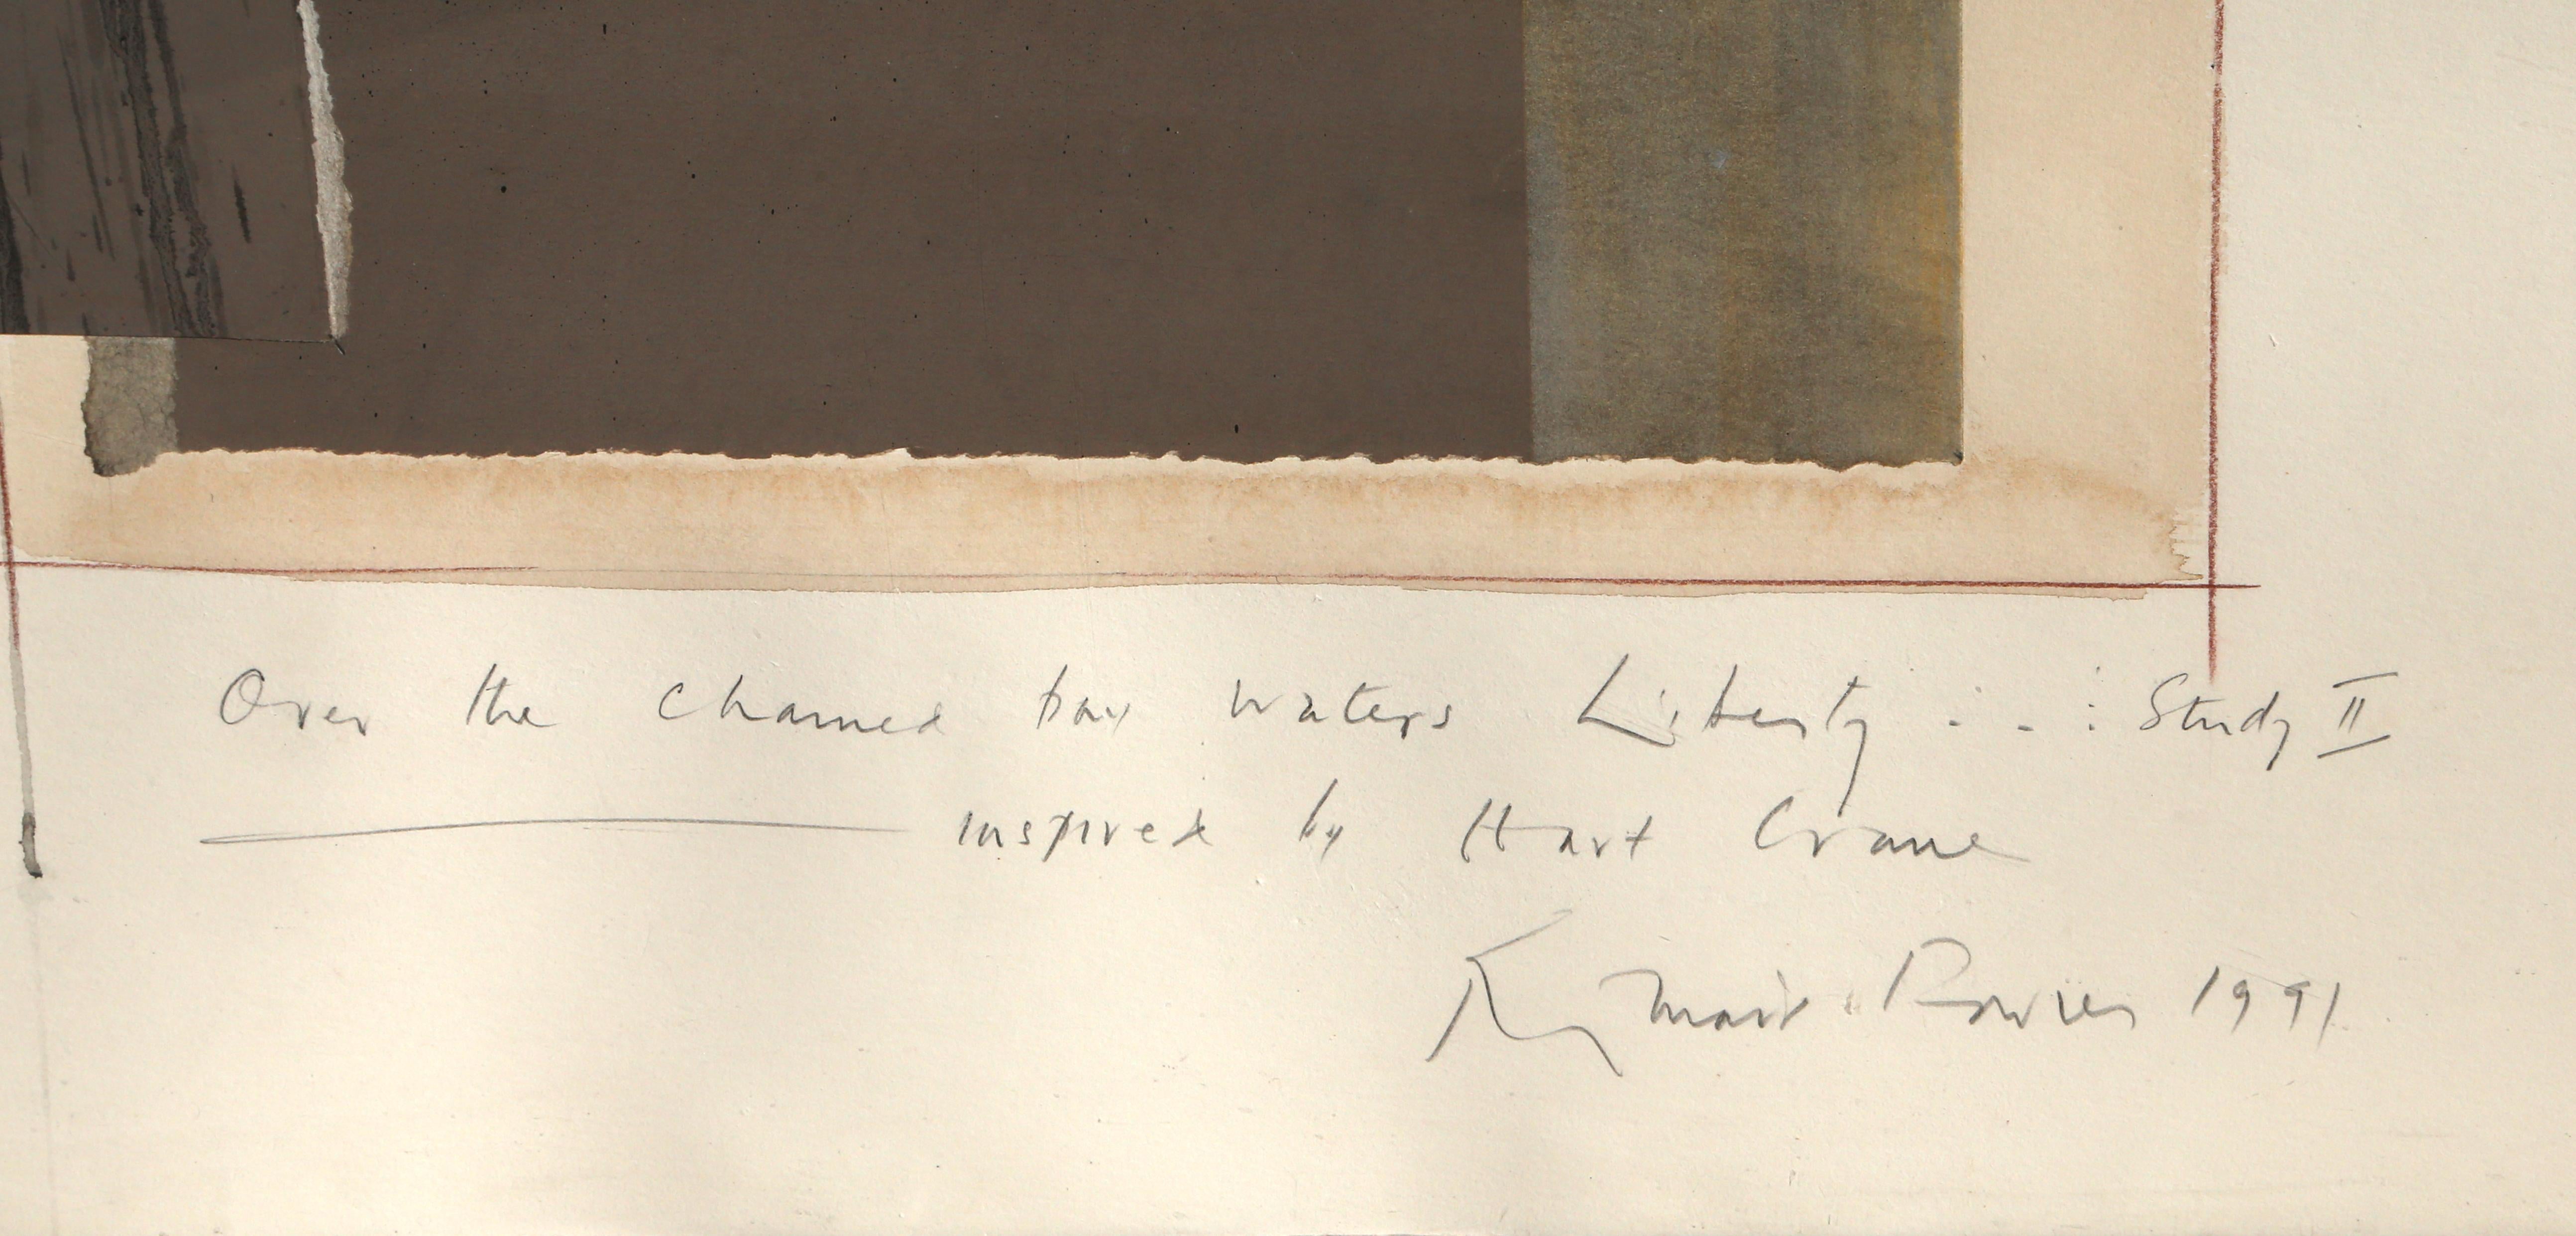 Over the chained bay waters Liberty . . . Study II
inspired by Hart Crane
1991